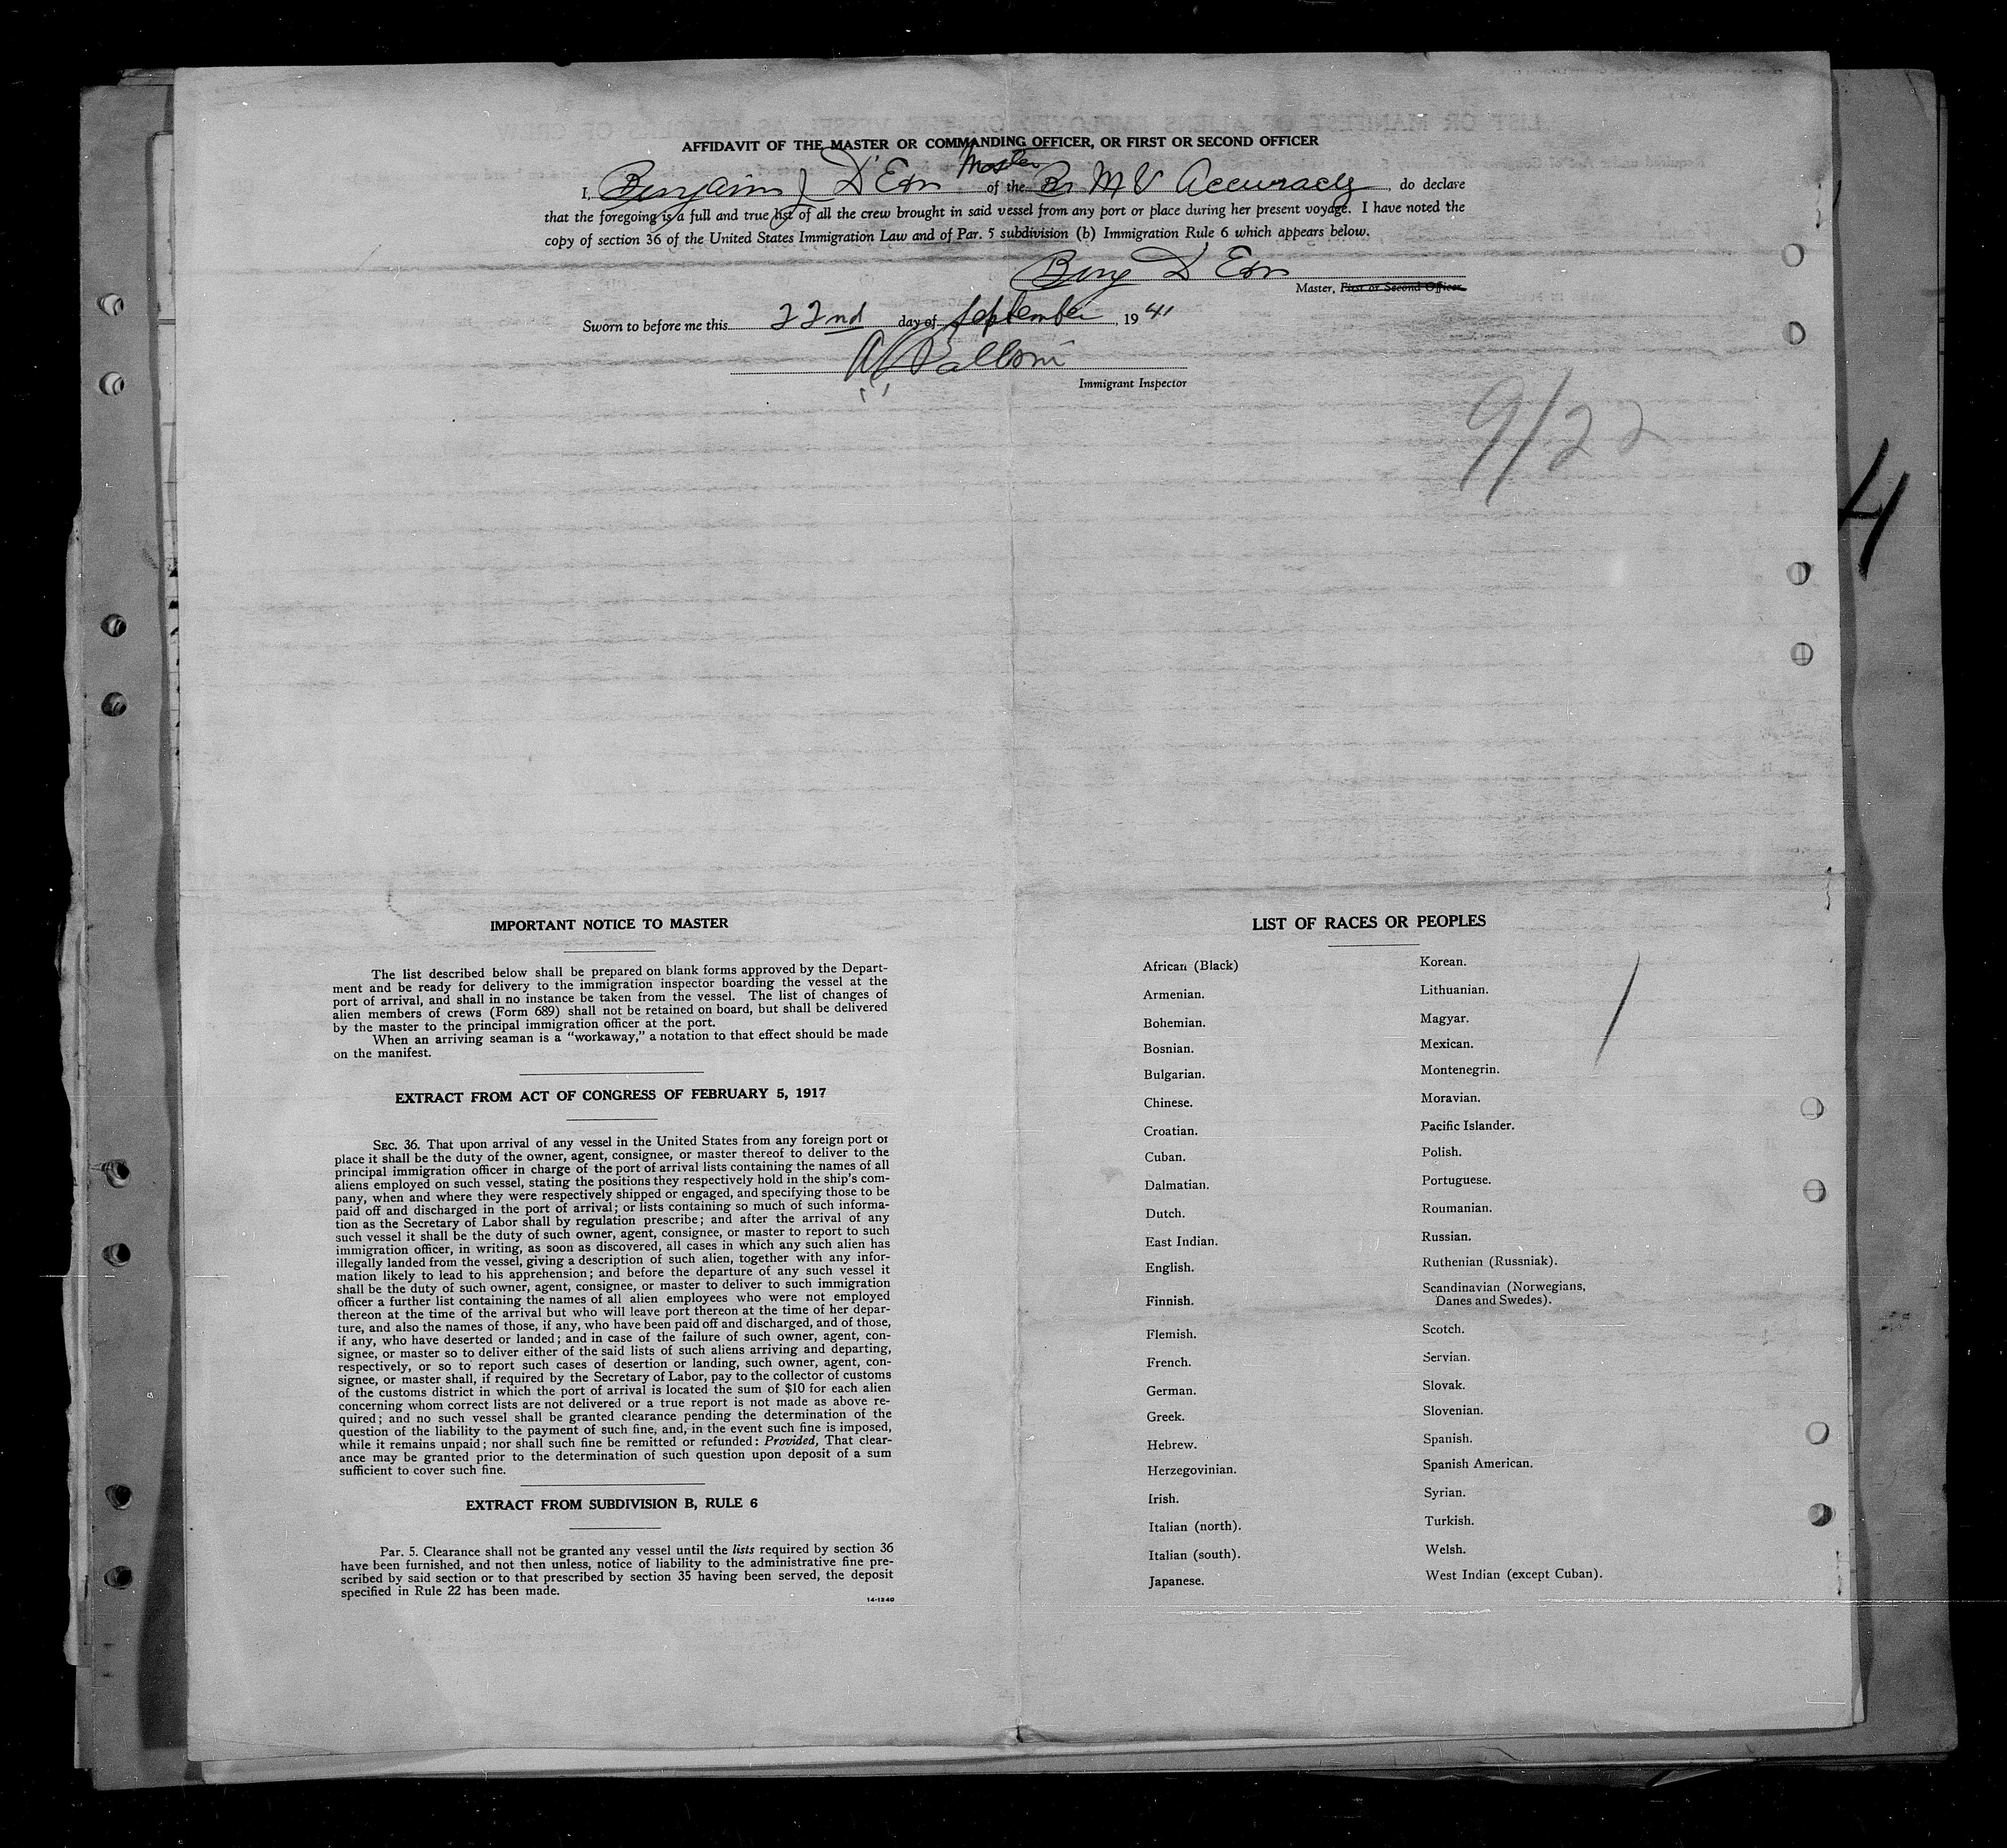 AFFIDAVIT OF THE MASTER OR COMMANDING OFFICER, OR FIRST OR SECOND OFFICER
Master
I, Benjamin J D'Eon of the Br M V Accuracy, do declare
that the foregoing is a full and true list of all the crew brought in said vessel from any port or place during her present voyage. I have noted the
copy of section 36 of the United States Immigration Law and of Par. 5 subdivision (b) Immigration Rule 6 which appears below.
Benj D'Eon
Master, First or Second Officer.
Sworn to before me this 22nd day of September, 1941
Immigrant Inspector
9/22
4
IMPORTANT NOTICE TO MASTER
The list described below shall be prepared on blank forms approved by the Depart-
ment and be ready for delivery to the immigration inspector boarding the vessel at the
port of arrival, and shall in no instance be taken from the vessel. The list of changes of
alien members of crews (Form 689) shall not be retained on board, but shall be delivered
by the master to the principal immigration officer at the port.
When an arriving seaman is a "workaway," a notation to that effect should be made
on the manifest.
EXTRACT FROM ACT OF CONGRESS OF FEBRUARY 5, 1917
SEC. 36. That upon arrival of any vessel in the United States from any foreign port or
place it shall be the duty of the owner, agent, consignee, or master thereof to deliver to the
principal immigration officer in charge of the port of arrival lists containing the names of all
aliens employed on such vessel, stating the positions they respectively hold in the ship's com-
pany, when and where they were respectively shipped or engaged, and specifying those to be
paid off and discharged in the port of arrival; or lists containing so much of such informa-
tion as the Secretary of Labor shall by regulation prescribe; and after the arrival of any
such vessel it shall be the duty of such owner, agent, consignee, or master to report to such
immigration officer, in writing, as soon as discovered, all cases in which any such alien has
illegally landed from the vessel, giving a description of such alien, together with any infor-
mation likely to lead to his apprehension; and before the departure of any such vessel it
shall be the duty of such owner, agent, consignee, or master to deliver to such immigration
officer a further list containing the names of all alien employees who were not employed
thereon at the time of the arrival but who will leave port thereon at the time of her depar-
ture, and also the names of those, if any, who have been paid off and discharged, and of those,
if any, who have deserted or landed; and in case of the failure of such owner, agent, con-
signee, or master so to deliver either of the said lists of such aliens arriving and departing,
respectively, or so to report such cases of desertion or landing, such owner, agent, con-
signee, or master shall, if required by the Secretary of Labor, pay to the collector of customs
of the customs district in which the port of arrival is located the sum of $10 for each alien
concerning whom correct lists are not delivered or a true report is not made as above re-
quired; and no such vessel shall be granted clearance pending the determination of the
question of the liability to the payment of such fine, and, in the event such fine is imposed,
while it remains unpaid; nor shall such fine be remitted or refunded: Provided, That clear-
ance may be granted prior to the determination of such question upon deposit of a sum
sufficient to cover such fine.
EXTRACT FROM SUBDIVISION B, RULE 6
Par. 5. Clearance shall not be granted any vessel until the lists required by section 36
have been furnished, and not then unless, notice of liability to the administrative fine pre-
scribed by said section or to that prescribed by section 35 having been served, the deposit
specified in Rule 22 has been made.
14-1240
LIST OF RACES OR PEOPLES
African (Black)
Armenian.
Bohemian.
Bosnian.
Bulgarian.
Chinese.
Croatian.
Cuban.
Dalmatian.
Dutch.
East Indian.
English.
Finnish.
Flemish.
French.
German.
Greek.
Hebrew.
Herzegovinian.
Irish.
Italian (north).
Italian (south).
Japanese.
Korean.
Lithuanian.
Magyar.
Mexican.
Montenegrin.
Moravian.
Pacific Islander.
Polish.
Portuguese.
Roumanian.
Russian.
Ruthenian (Russniak).
Scandinavian (Norwegians,
Danes and Swedes).
Scotch.
Servian.
Slovak.
Slovenian.
Spanish.
Spanish American.
Syrian.
Turkish.
Welsh.
West Indian (except Cuban).